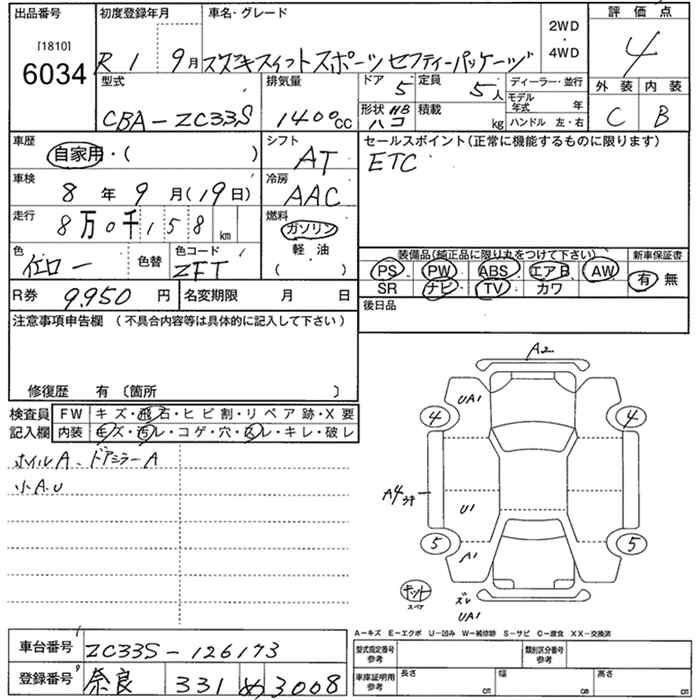 出品番号 初度登録年月 車名・グレード 2WD・4WD 評価点
[1810] 6034 R1 9月 スズキスイフトスポーツ セフティーパッケージ 4
型式 排気量 ドア 5 定員 5人 ディーラー・並行 外装 内装
CBA-ZC33S 1400cc 形状 HB ハコ 積載 kg モデル年式 年 ハンドル 左・右 C B
車歴 自家用・( ) シフト AT セールスポイント(正常に機能するものに限ります)
ETC
車検 8年9月(19日) 冷房 AAC
走行 8万0千158km 燃料 ガソリン 軽・油 ( )
色 イエロー 色替 色コード ZFT
装備品(純正品に限り丸をつけて下さい) 新車保証書
PS PW ABS エアB AW 有・無
SR ナビ TV カワ
R券 9,950円 名変期限 月 日 後日品
注意事項申告欄 (不具合内容等は具体的に記入して下さい)
修復歴 有 〔箇所 〕
検査員 FW キズ・飛石・ヒビ割・リペア跡・X要
記入欄 内装 キズ・汚レ・コゲ・穴・スレ・キレ・破レ
ホイルA、ドアミラーA
小A.U
A2
UA1
4 4
A4 ウキ
U1
5 5
A1
キット スペア
ズレ
UA1
A-キズ E-エクボ U-凹み W-補修跡 S-サビ C-腐食 XX-交換済
車台番号 ZC33S-126173 型式指定番号 参考 類別区分番号 参考
登録番号 奈良 331 め 3008 車庫証明用 参考 長さ cm 幅 cm 高さ cm